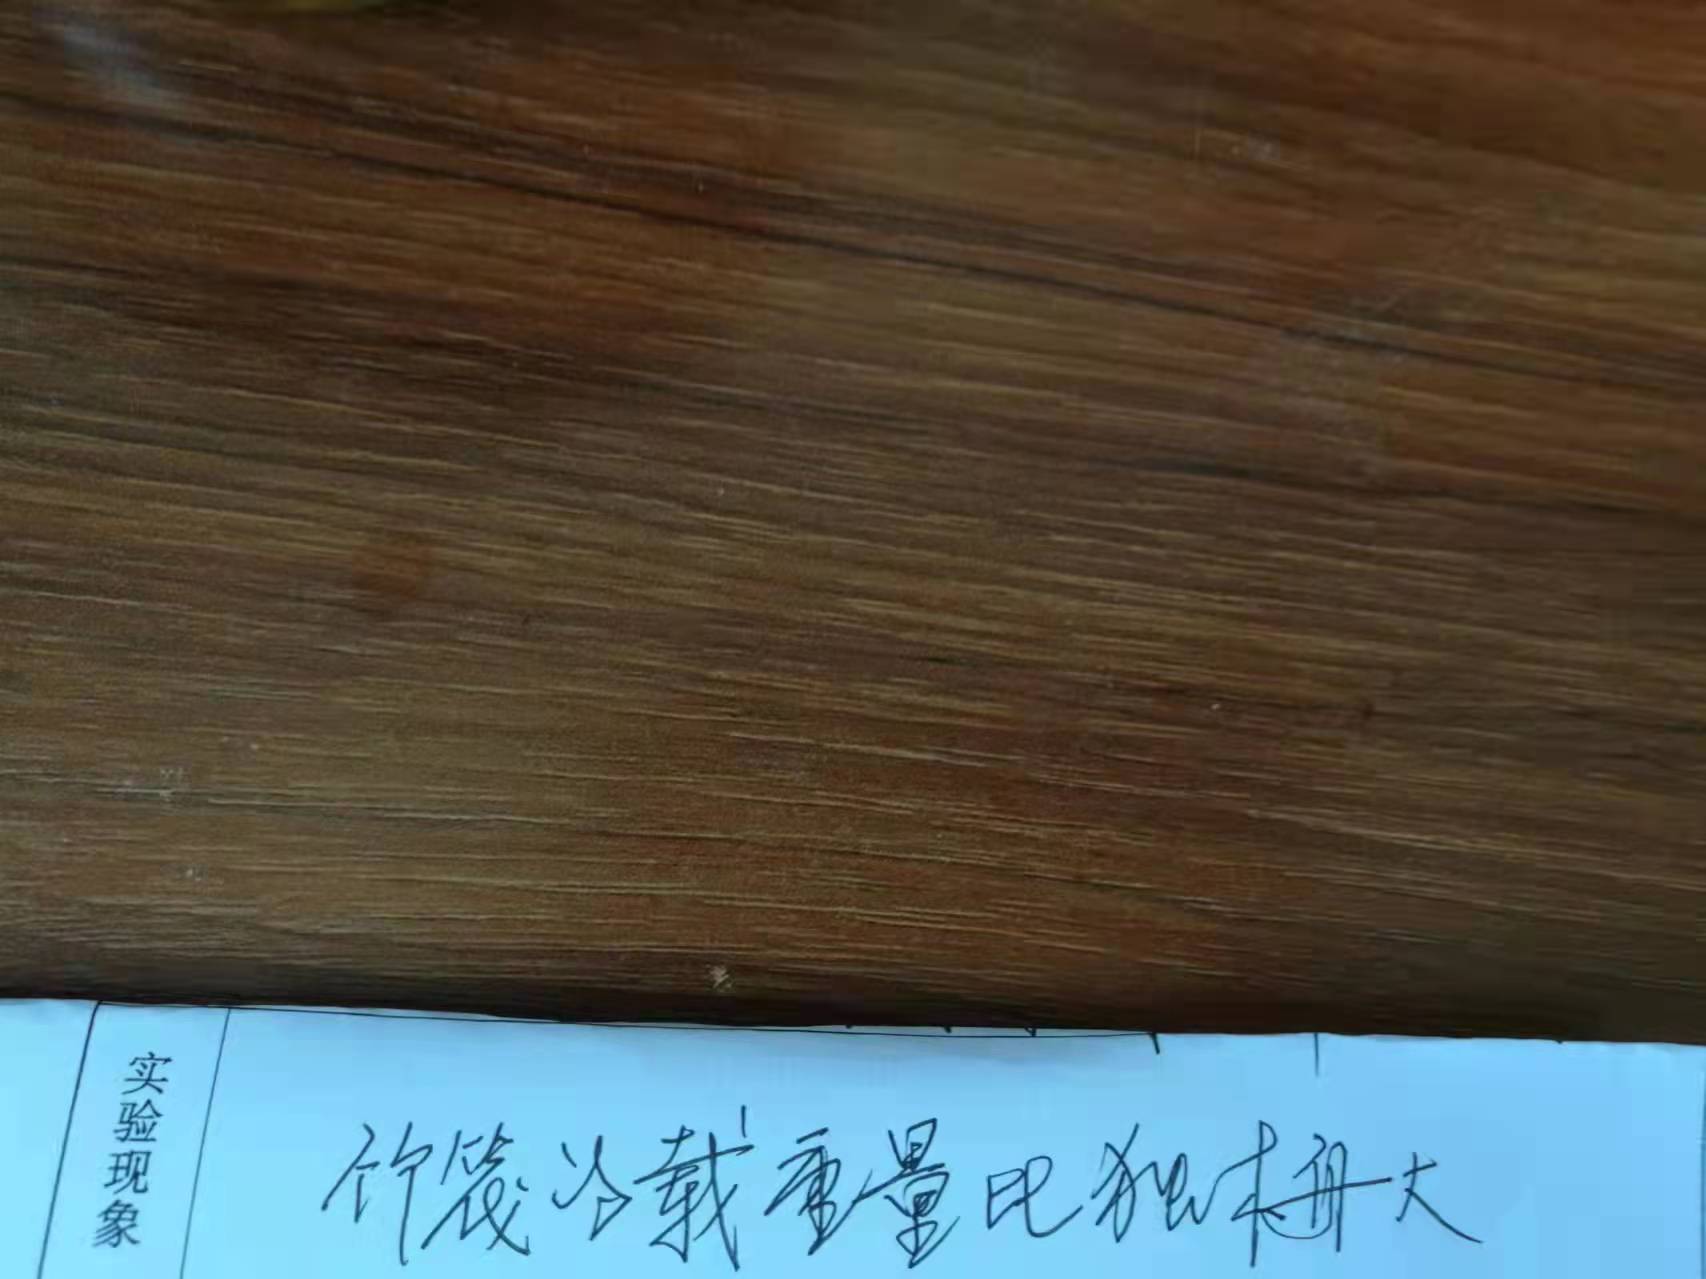 实验现象
竹筏的载重量比独木舟大